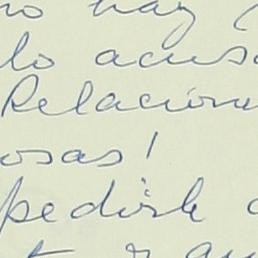 no hay
lo acus
Relacion
osas!
pedirle